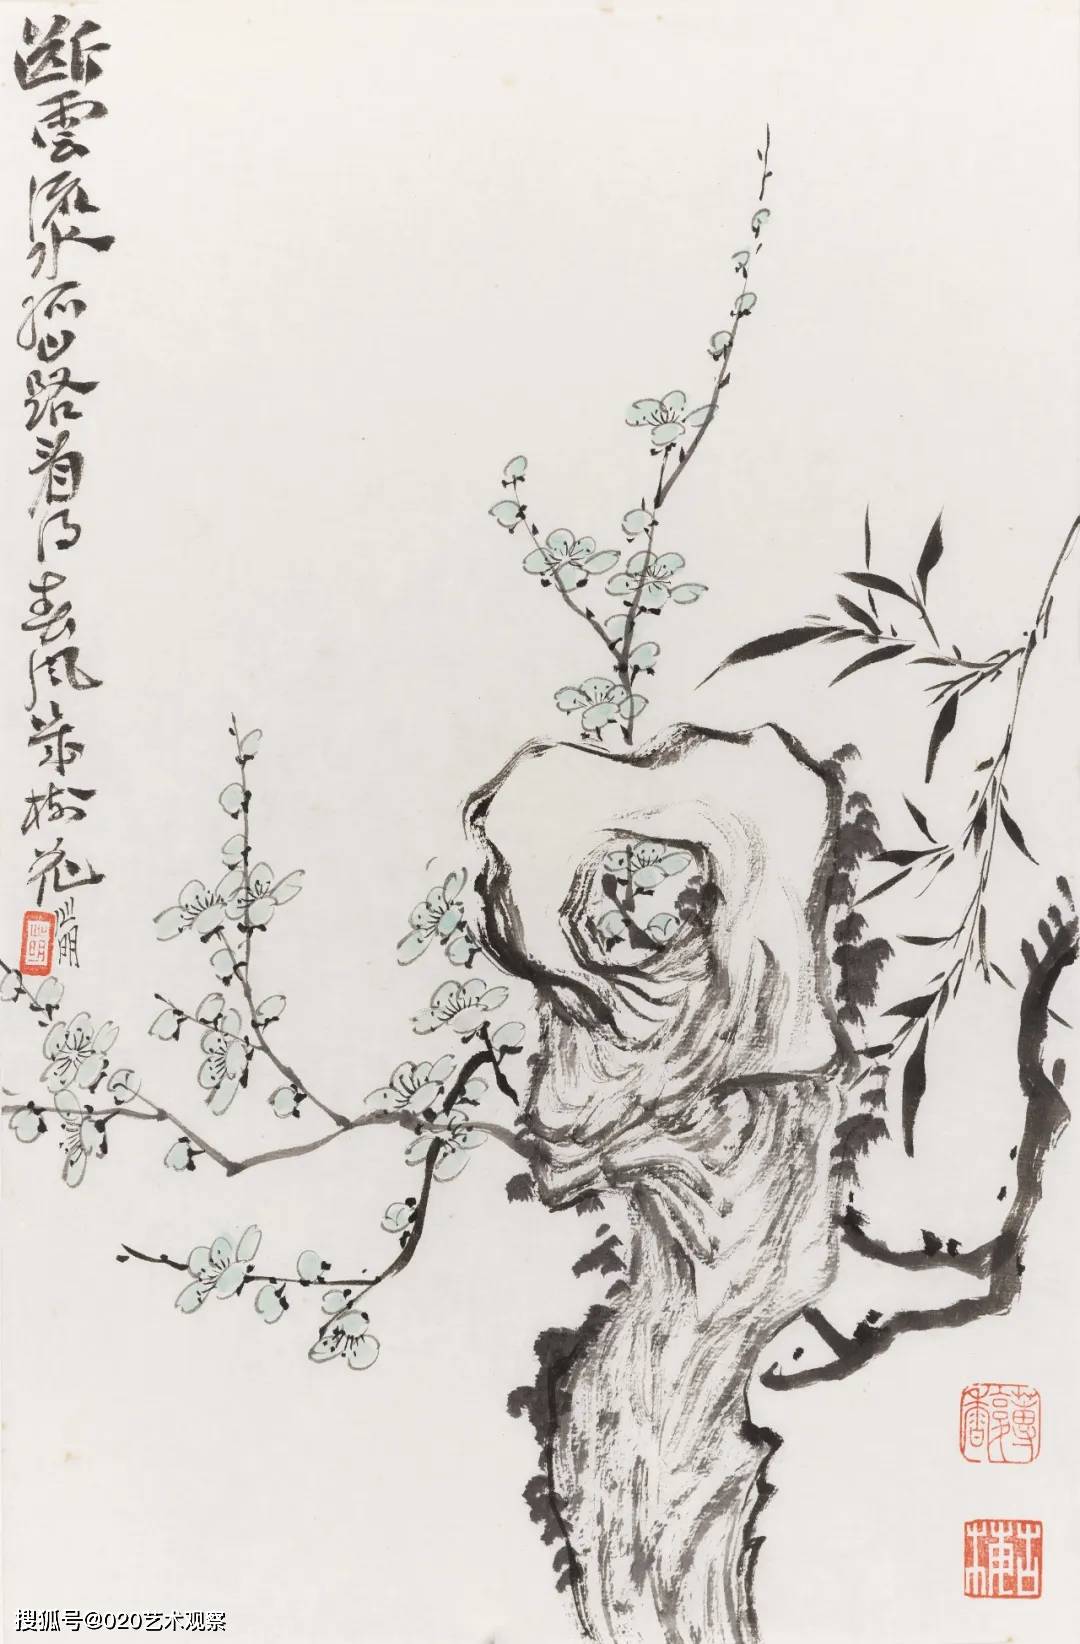 断雲流水孤山路看得春風幾樹花
古梅
搜狐号@020艺术观察